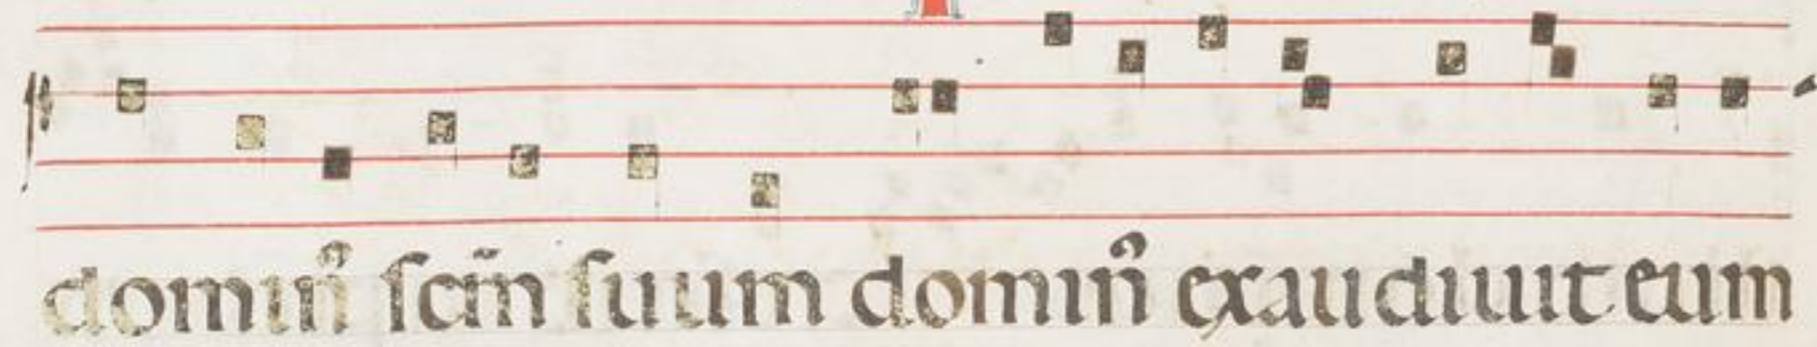 domin᷑ ſcm̄ ſuum domin᷑ exaudiuit eum